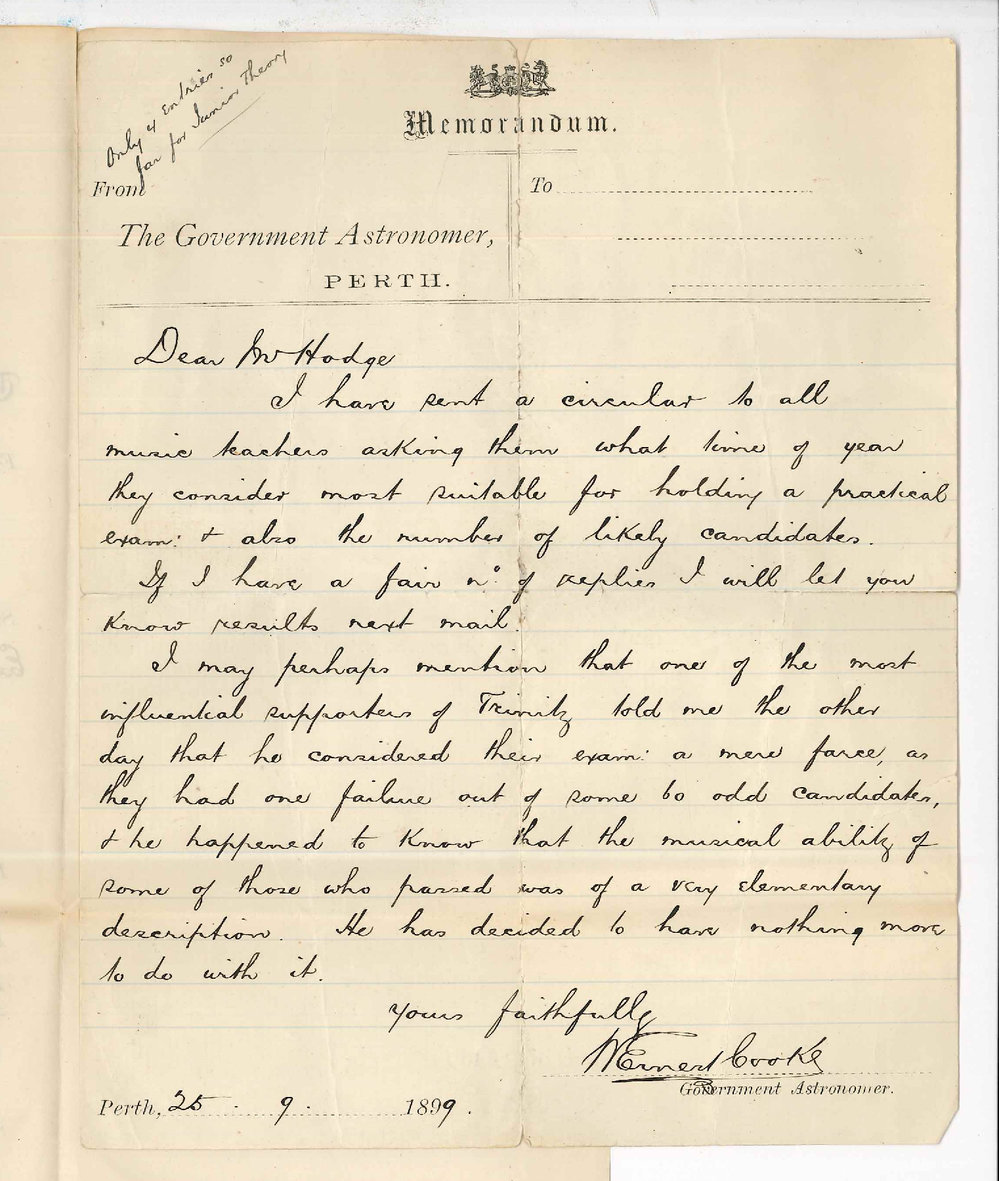 Only 4 entries so
far for Junior Theory
Memorandum.
From
To
The Government Astronomer,
PERTH.
Dear Mr Hodge
I have sent a circular to all
music teachers asking them what time of year
they consider most suitable for holding a practical
exam: & also the number of likely candidates.
If I have a fair no. of replies I will let you
know results next mail.
I may perhaps mention that one of the most
influential supporters of Trinity told me the other
day that he considered their exam: a mere farce, as
they had one failure out of some 60 odd candidates,
& he happened to know that the musical ability of
some of those who passed was of a very elementary
description. He has decided to have nothing more
to do with it.
Yours faithfully
W Ernest Cooke
Government Astronomer.
Perth, 25 . 9 . 1899.